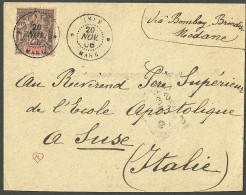 20
NOV
MAHÉ
20
NOV
06
MAHÉ
Via Bombay Brindisi
Modane
Au Révérend Père Supérieur
de l'Ecole Apostolique
a Suse
(Italie)